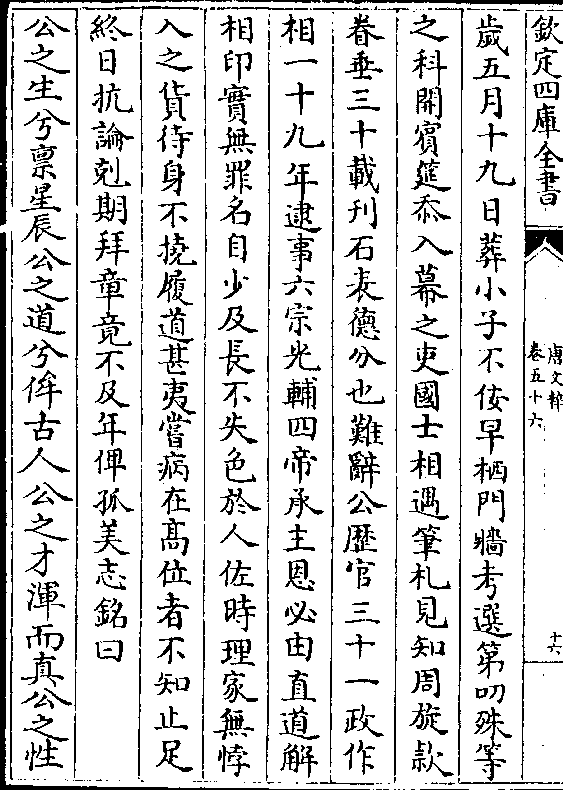 欽定四庫全書
唐文粹
卷五十六
十六
歲五月十九日葬小子不佞早栖門牆考選第叨殊等
之科開賓筵忝入幕之吏國士相遇筆札見知周旋款
眷垂三十載刊石表德分也難辭公歷官三十一政作
相一十九年逮事六宗光輔四帝承主恩必由直道解
相印實無罪名自少及長不失色於人佐時理家無悖
入之貨待身不撓履道甚夷嘗病在髙位者不知止足
終日抗論剋期拜章竟不及年俾孤美志銘曰
公之生兮禀星辰公之道兮侔古人公之才渾而真公之性